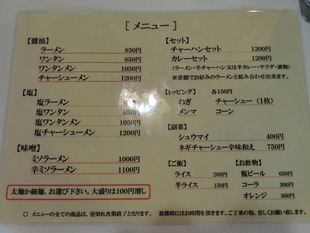 [ メニュー ]
【醤油】
ラーメン 850円
ワンタン 850円
ワンタンメン 1050円
チャーシューメン 1200円
【塩】
塩ラーメン 850円
塩ワンタン 850円
塩ワンタンメン 1050円
塩チャーシューメン 1200円
【味噌】
ミソラーメン 1000円
辛ミソラーメン 1100円
太麺か細麺、お選び下さい。大盛りは100円増し
【セット】
チャーハンセット 1200円
カレーセット 1200円
(ラーメン・半チャーハン又は半カレー・サラダ・漬物)
※差額でお好みのラーメンと組み合わせ出来ます。
【トッピング】 各150円
ねぎ チャーシュー(1枚)
メンマ コーン
【副菜】
シュウマイ 400円
ネギチャーシュー辛味和え 750円
【ご飯】 【お飲物】
ライス 200円 瓶ビール 650円
半ライス 150円 コーラ 300円
オレンジ 300円
○ メニューの全ての商品は、売切れ次第終了となります。
混雑時にはお時間を頂きます。ご了承の程、宜しくお願い致します。